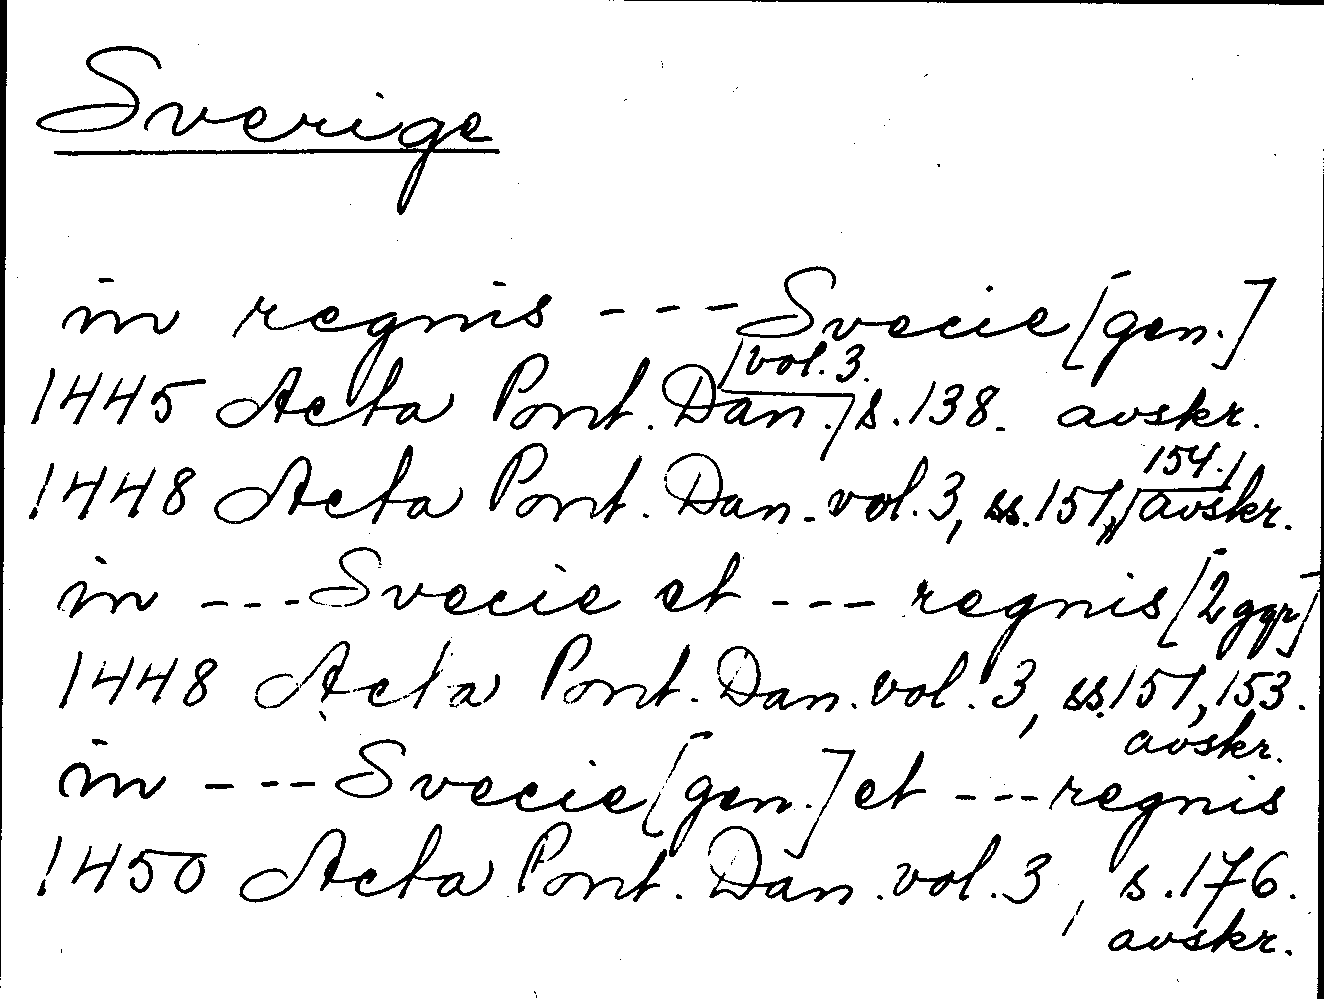 Sverige
in regnis --- Svecie [gen.]
1445 Acta Pont. Dan. vol. 3. s. 138. avskr.
1448 Acta Pont. Dan. vol. 3, ss. 151, 154. avskr.
in --- Svecie et --- regnis [2 ggr]
1448 Acta Pont. Dan. vol. 3, ss. 151, 153.
avskr.
in --- Svecie [gen.] et --- regnis
1450 Acta Pont. Dan. vol. 3, s. 176.
avskr.